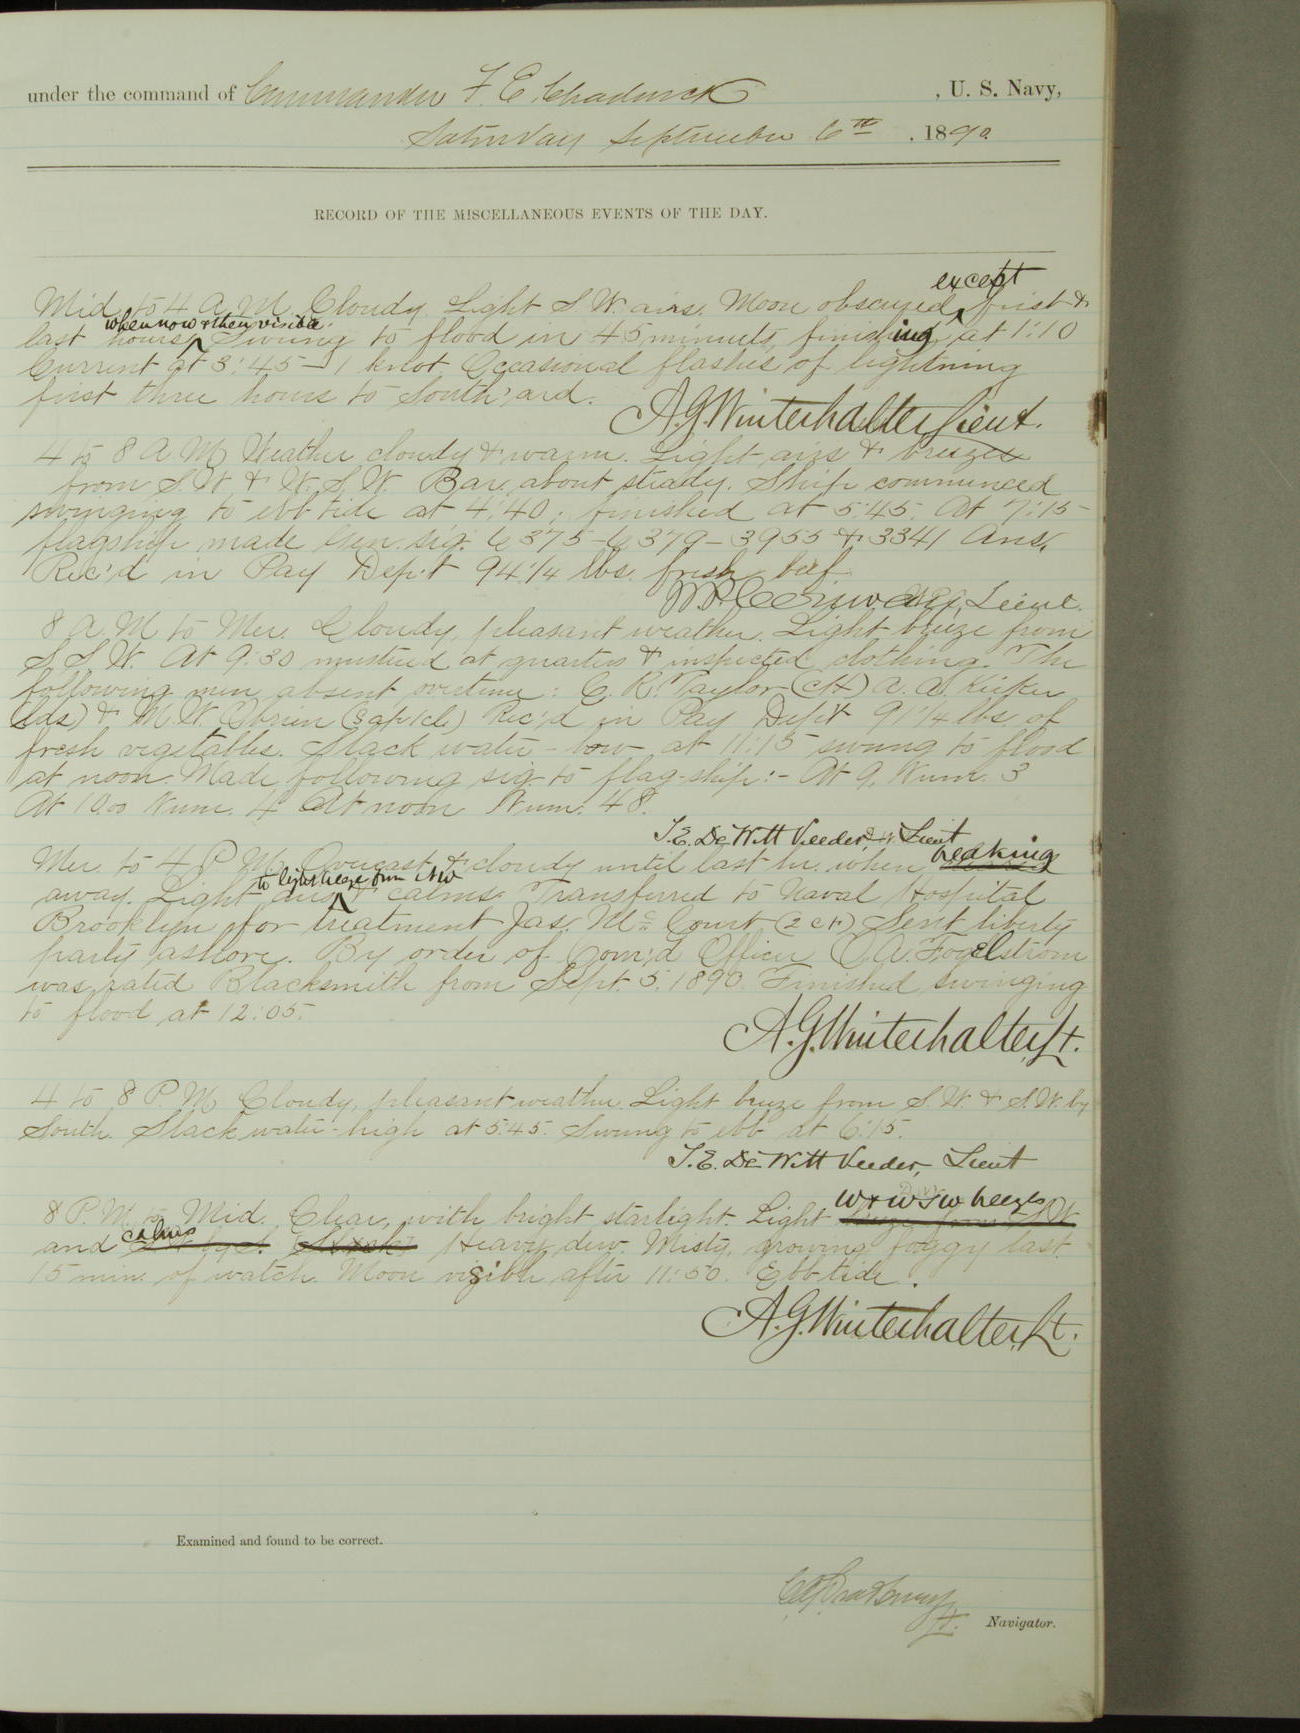 under the command of Commander F. E. Chadwick , U. S. Navy,
Saturday September 6th , 1890
RECORD OF THE MISCELLANEOUS EVENTS OF THE DAY.
except
Mid. to 4 A.M. Cloudy. Light S.W. airs. Moon obscured, first &
when now & then visible.
last hours. Swung to flood in 45 minutes, finishing at 1:10
Current at 3:45 - 1 knot. Occasional flashes of lightning
first three hours to South'ard.
A.G. Winterhalter, Lieut.
4 to 8 A M Weather cloudy & warm. Light airs & breezes
from S.W. & W.S.W. Bar. about steady. Ship commenced
swinging to ebb tide at 4:40; finished at 5:45. At 7:15-
flagship made Gen. Sig. 6375-6379-3955 & 3341 Ans.
Rec'd in Pay Dep't 94 1/4 lbs. fresh beef
Lieut.
8 A.M to Mer. Cloudy, pleasant weather. Light breeze from
S.S.W. At 9:30 mustered at quarters & inspected clothing. The
following men absent overtime: C. R. Taylor A. A.
(lds) & M.W. Obrien Rec'd in Pay Dep't 91 1/4 lbs. of
fresh vegetables. Slack water - low at 11:15 swung to flood
at noon. Made following sig. to flag-ship:- At 9, Num. 3
At 10.00 Num. 4 At noon Num. 48.
T.E. DeWitt Veeder, Lieut
breaking
Mer. to 4 P.M. Overcast & cloudy until last hr. when
to light breeze from
away. Light airs & calms. Transferred to Naval Hospital
Brooklyn for treatment Jas. Mc Court Sent liberty
party ashore. By order of Com'd Officer C.A. Fogelstrom
was rated Blacksmith from Sept. 5. 1890. Finished swinging
to flood at 12:05.
A.G. Winterhalter, Lt.
4 to 8 P.M Cloudy, pleasant weather. Light breeze from S.W. & S.W. by
South. Slack water-high at 5:45. Swung to ebb at 6:15.
T.E. DeWitt Veeder, Lieut
W & WSW breezes
8 P.M. to Mid. Clear, with bright starlight. Light
calms
and Heavy dew. Misty, growing foggy last
15 min. of watch. Moon visible after 11:50. Ebb tide.
A.G. Winterhalter, Lt.
Examined and found to be correct.
Lt. Navigator.